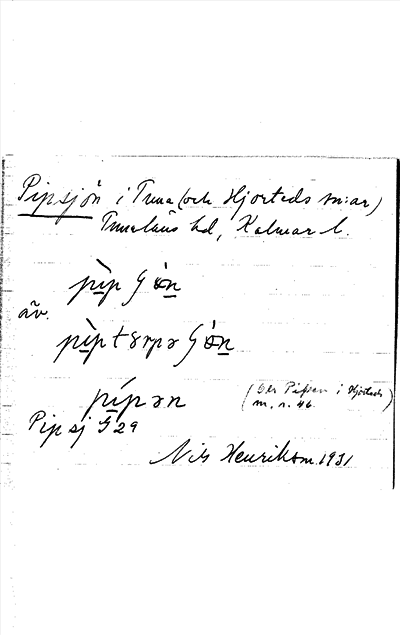 Pipsjön i Tuna (och Hjorteds sn:ar)
Tunaläns hd, Kalmar l.
pìp
äv.
pìp
pípən
(Se Pipen i Hjorteds
m, n. 46.
Pipsj G 29
Nils Henrikson 1931